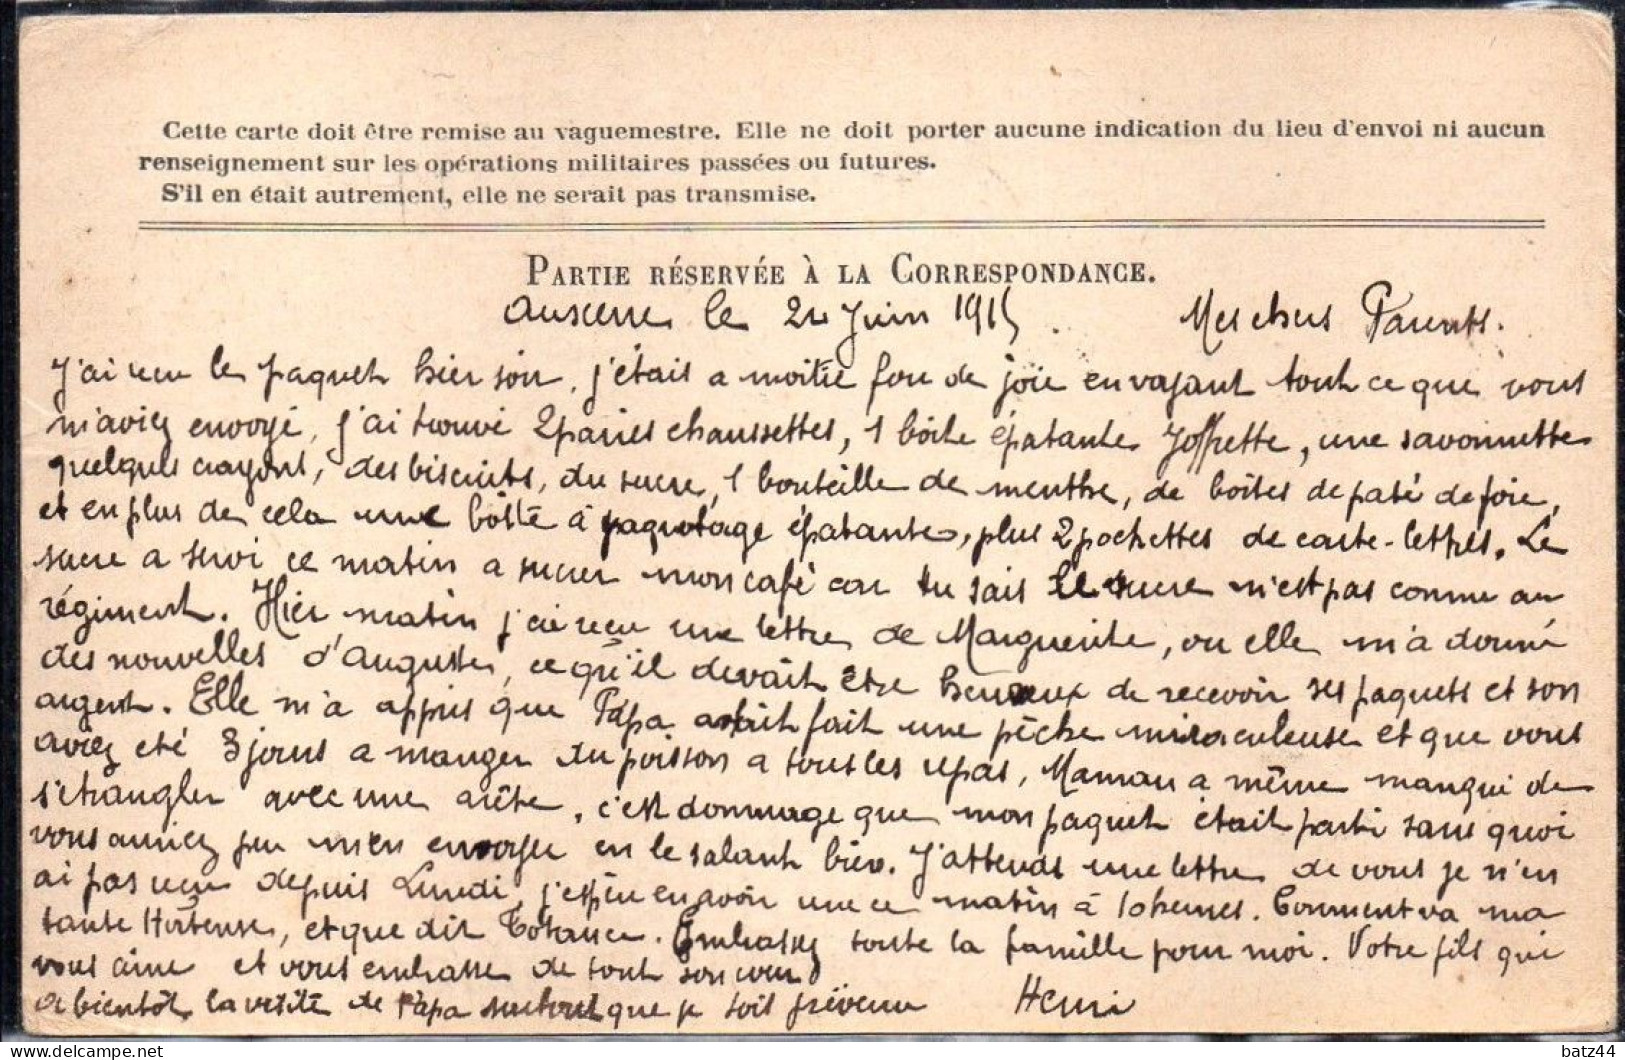 Cette carte doit être remise au vaguemestre. Elle ne doit porter aucune indication du lieu d'envoi ni aucun
renseignement sur les opérations militaires passées ou futures.
S'il en était autrement, elle ne serait pas transmise.
PARTIE RÉSERVÉE À LA CORRESPONDANCE.
Auxerre le 24 Juin 1915. Mes chers Parents.
J'ai reçu le paquet hier soir, j'étais a moitié fou de joie en voyant tout ce que vous
m'aviez envoyé, j'ai trouvé 2 paires chaussettes, 1 boîte épatante Joffrette, une savonnette
quelques crayons, des biscuits, du sucre, 1 bouteille de menthe, de boîtes de paté de foie,
et en plus de cela une boîte à paquetage épatante, plus 2 pochettes de carte-lettres. Le
sucre a servi ce matin a sucrer mon café car tu sais le sucre n'est pas connu au
régiment. Hier matin j'ai reçu une lettre de Marguerite, ou elle m'a donné
des nouvelles d'Auguste, ce qu'il devait être heureux de recevoir ses paquets et son
argent. Elle m'a appris que Papa avait fait une pêche miraculeuse et que vous
aviez eté 3 jours a manger du poisson a tous les repas, Maman a même manqué de
s'étrangler avec une arête, c'est dommage que mon paquet était parti sans quoi
vous auriez pu m'en envoyer en le salant bien. J'attends une lettre de vous je n'en
ai pas reçu depuis Lundi, j'espère en avoir une ce matin à 10 heures. Comment va ma
tante Hortense, et que dit. Embrassez toute la famille pour moi. Votre fils qui
vous aime et vous embrasse de tout son cœur
a bientôt la visite de Papa surtout que je sois prévenu Henri
batz44